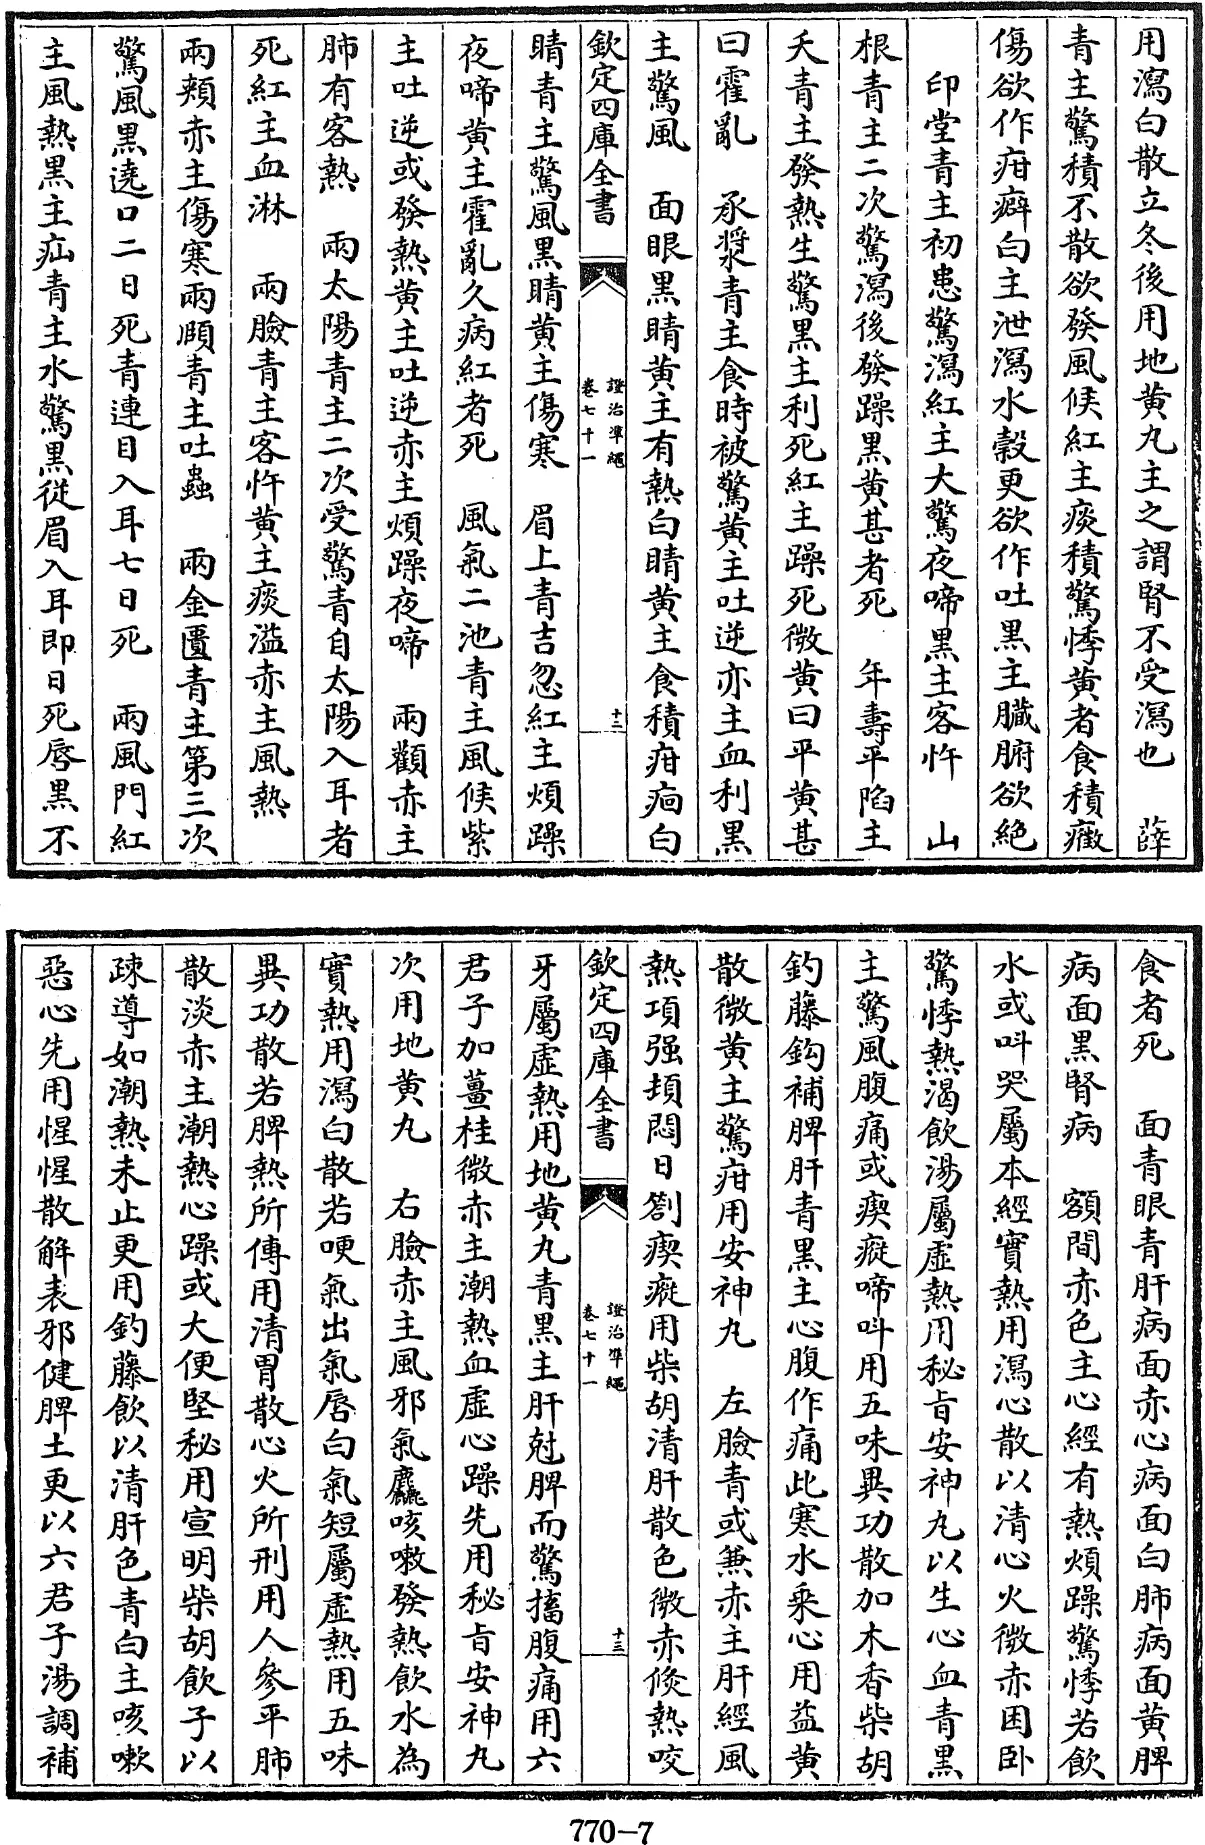 用瀉白散立冬後用地黄丸主之謂腎不受瀉也　薛
青主驚積不散欲發風候紅主痰積驚悸黄者食積癥
傷欲作疳癖白主泄瀉水穀更欲作吐黒主臓腑欲絶
印堂青主初患驚瀉紅主大驚夜啼黒主客忤　山
根青主二次驚瀉後發躁黒黄甚者死　年壽平陷主
夭青主發熱生驚黒主利死紅主躁死微黄曰平黄甚
曰霍亂　承漿青主食時被驚黄主吐逆亦主血利黒
主驚風　面眼黒睛黄主有熱白睛黄主食積疳痼白
欽定四庫全書
證治凖繩
卷七十一
十二
睛青主驚風黒睛黄主傷寒　眉上青吉忽紅主煩躁
夜啼黄主霍亂久病紅者死　風氣二池青主風候紫
主吐逆或發熱黄主吐逆赤主煩躁夜啼　兩顴赤主
肺有客熱　兩太陽青主二次受驚青自太陽入耳者
死紅主血淋　兩臉青主客忤黄主痰溢赤主風熱
兩頰赤主傷寒兩頤青主吐蟲　兩金匱青主第三次
驚風黒遶口二日死青連目入耳七日死　兩風門紅
主風熱黒主疝青主水驚黒從眉入耳即日死唇黒不
食者死　面青眼青肝病面赤心病面白肺病面黄脾
病面黒腎病　額間赤色主心經有熱煩躁驚悸若飲
水或叫哭屬本經實熱用瀉心散以清心火微赤困卧
驚悸熱渴飲湯屬虛熱用秘旨安神丸以生心血青黒
主驚風腹痛或瘈瘲啼叫用五味異功散加木香柴胡
釣藤鈎補脾肝青黒主心腹作痛此寒水乘心用益黄
散微黄主驚疳用安神丸　左臉青或兼赤主肝經風
熱項强頓悶目劄瘈瘲用柴胡清肝散色微赤倐熱咬
欽定四庫全書
證治凖繩
卷七十一
十三
牙屬虛熱用地黄丸青黒主肝尅脾而驚搐腹痛用六
君子加薑桂微赤主潮熱血虛心躁先用秘旨安神丸
次用地黄丸　右臉赤主風邪氣麤咳嗽發熱飲水為
實熱用瀉白散若哽氣出氣唇白氣短屬虛熱用五味
異功散若脾熱所傳用清胃散心火所刑用人參平肺
散淡赤主潮熱心躁或大便堅秘用宣明柴胡飲子以
疎導如潮熱未止更用釣藤飲以清肝色青白主咳嗽
惡心先用惺惺散解表邪健脾土更以六君子湯調補
770-7